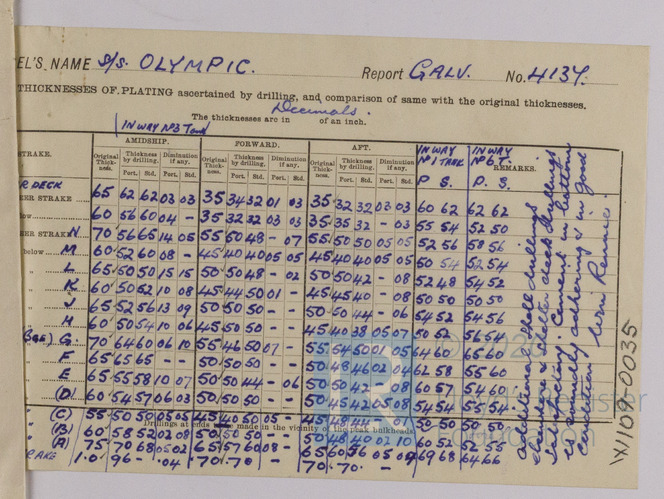 EL'S NAME S/S. OLYMPIC. Report GALV. No. 4137.
THICKNESSES OF PLATING ascertained by drilling, and comparison of same with the original thicknesses.
The thicknesses are in Decimals. of an inch.
IN WAY No 3 Tank
STRAKE. AMIDSHIP. FORWARD. AFT. IN WAY No 1 TANK IN WAY No 6 T. REMARKS.
Original Thickness. Thickness by drilling. Diminution if any. Original Thickness. Thickness by drilling. Diminution if any. Original Thickness. Thickness by drilling. Diminution if any.
Port. Std. Port. Std. Port. Std. Port. Std. Port. Std. Port. Std. P S. P. S.
R DECK 65 62 62 03 03 35 34 32 01 03 35 32 32 03 03 60 62 62 62
ER STRAKE 60 56 60 04 - 35 32 32 03 03 35 35 32 - 03 55 54 52 50
ER STRAKE N 70 56 65 14 05 55 50 48 - 07 55 50 50 05 05 52 56 58 56
below M 60 52 60 08 - 45 40 40 05 05 45 40 40 05 05 60 54 52 54
" L 65 50 50 15 15 50 50 48 - 02 50 50 42 - 08 52 48 54 52
" K 60 50 52 10 08 45 44 50 01 - 45 45 40 - 08 50 50 50 50
" J 65 52 56 13 09 50 50 50 - - 50 50 44 - 06 54 52 54 56
" H 60 50 54 10 06 45 50 50 - - 45 40 38 05 07 50 52 56 54
G. 70 64 60 06 10 55 46 50 07 - 55 54 50 01 05 64 60 65 60
" F 65 65 65 - - 50 50 50 - - 50 48 46 02 04 62 58 55 60
" E 65 55 58 10 07 50 50 44 - 06 50 50 42 - 08 60 57 54 60
" (D) 60 54 57 06 03 50 50 50 - - 50 45 42 05 08 54 54 55 54
" (C) 55 50 50 05 05 45 40 50 05 - 45 48 44 - 01 50 50 50 50
Drillings at ends are made in the vicinity of the peak bulkheads
" (B) 60 58 52 02 08 50 50 50 - - 50 48 40 02 10 60 52 52 55
" (A) 75 70 68 05 02 65 57 60 08 - 65 60 56 05 09 69 68 64 66
RAKE 1.0 96 - .04 .70 .70 - 70 .70 -
additional shell drillings
& shelter deck drillings
satisfactory. Cement in bottom
is soundly adhering & in good
condition
W109-0035